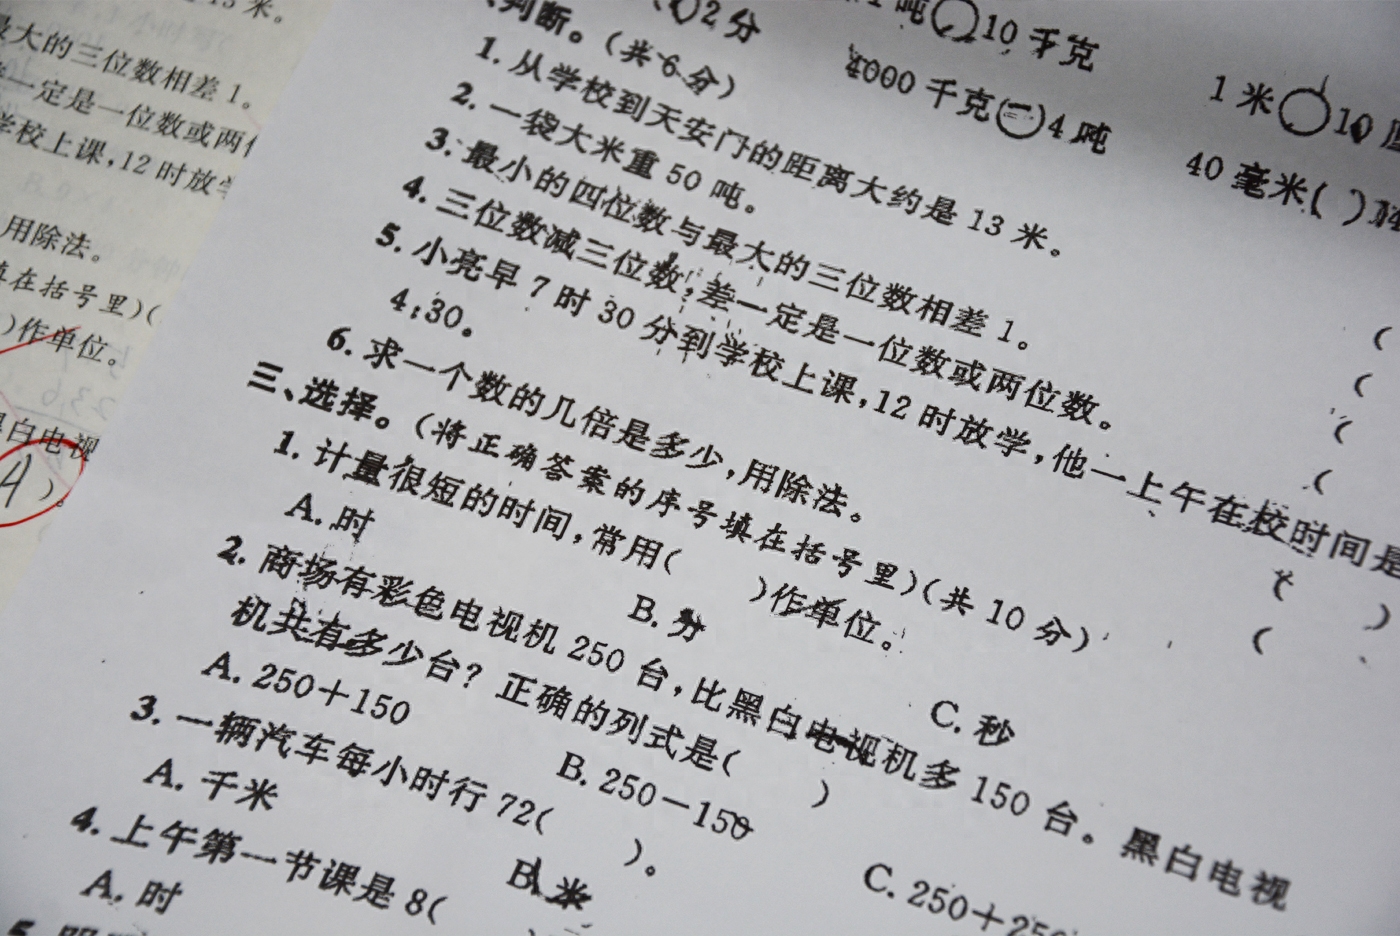 13米。
最大的三位数相差1。
一定是一位数或两位
学校上课,12时放学
用除法。
填在括号里)(
)作单位。
黑白电视
4)。
2分
1吨○10千克
4000千克(=)4吨
1米○10
40毫米( )
判断。(共6分)
1.从学校到天安门的距离大约是13米。 (
2.一袋大米重50吨。 (
3.最小的四位数与最大的三位数相差1。 (
4.三位数减三位数,差一定是一位数或两位数。 (
5.小亮早7时30分到学校上课,12时放学,他一上午在校时间是
4:30。 ( )
6.求一个数的几倍是多少,用除法。 (
三、选择。(将正确答案的序号填在括号里)(共10分)
1.计量很短的时间,常用( )作单位。
A.时 B.分 C.秒
2.商场有彩色电视机250台,比黑白电视机多150台。黑白电视
机共有多少台?正确的列式是( )
A.250+150 B.250-150 C.250+250
3.一辆汽车每小时行72( )。
A.千米 B.米
4.上午第一节课是8(
A.时
5.